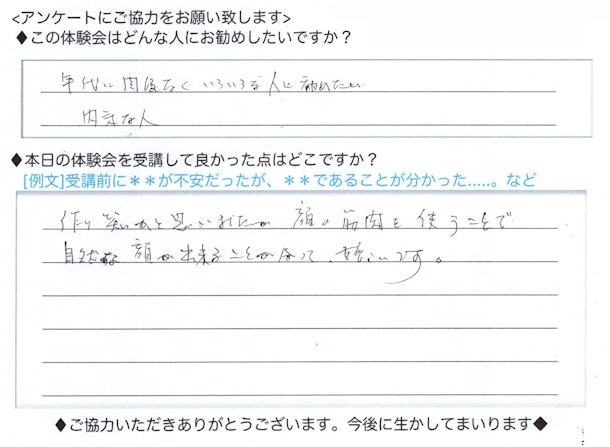 <アンケートにご協力をお願い致します>
◆この体験会はどんな人にお勧めしたいですか？
年代に関係なくいろいろな人に勧めたい
内気な人
◆本日の体験会を受講して良かった点はどこですか？
[例文]受講前に＊＊が不安だったが、＊＊であることが分かった.....。など
作り笑いかと思いましたが 顔の筋肉を使うことで
自然な顔が出来ることが分って、嬉しいです。
◆ご協力いただきありがとうございます。今後に生かしてまいります◆